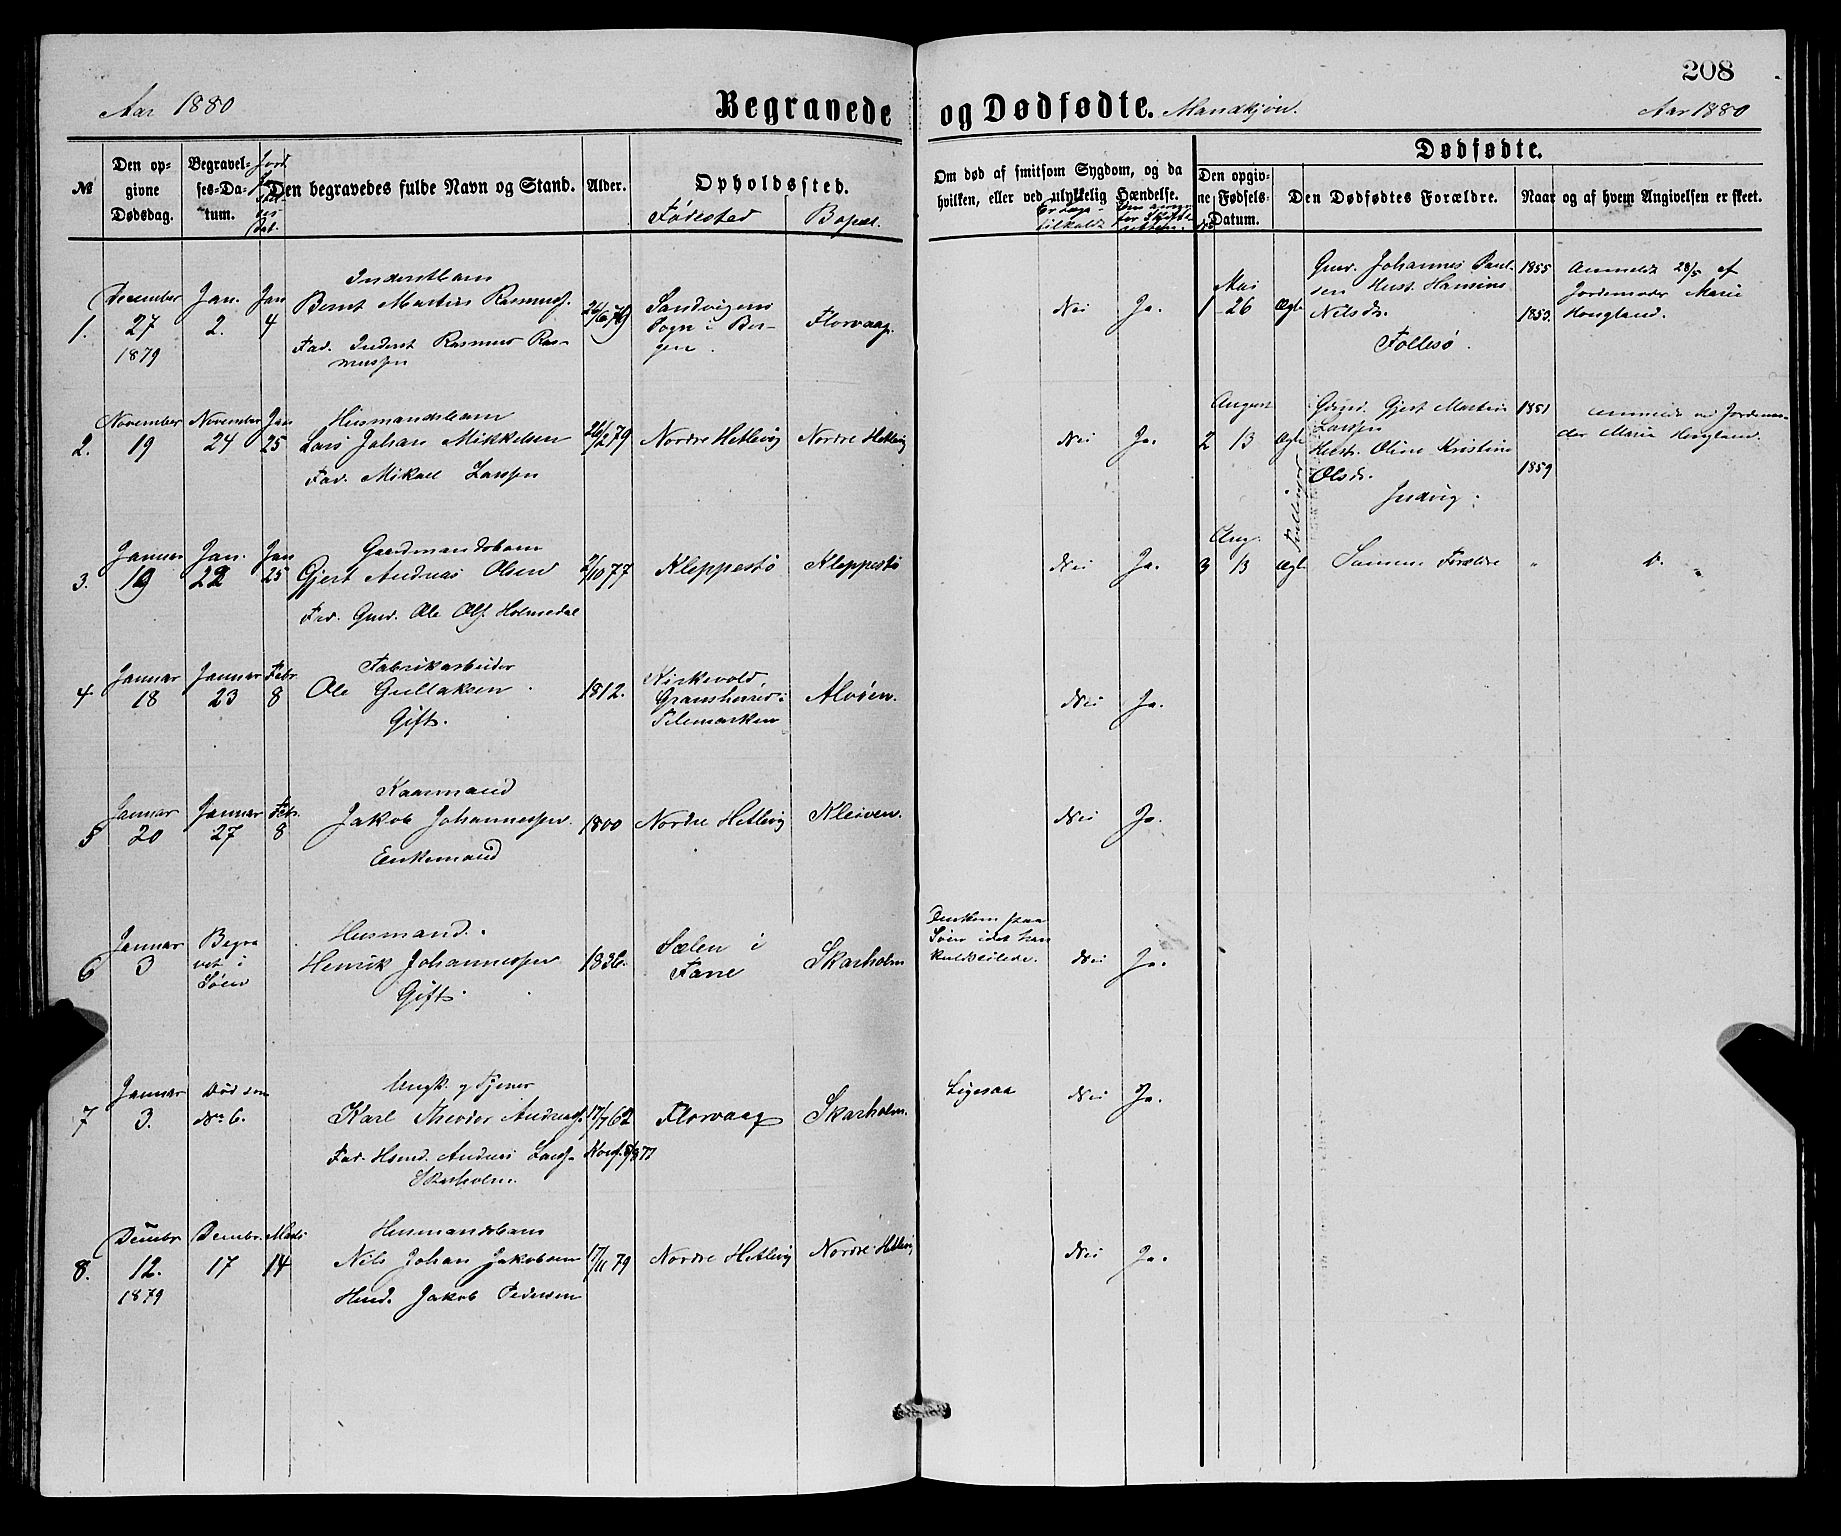 208
Aar 1880
Begravede og Dødfødte. Mandkjøn.
Aar 1880
№
Den opgivne Dødsdag.
Begravelses-Datum.
Den begravedes fulde Navn og Stand.
Alder.
Opholdssted.
Fødested
Bopæl.
Om død af smitsom Sygdom, og da
hvilken, eller ved ulykkelig Hændelse.
Dødfødte.
Den opgivne Fødsels-Datum.
Den Dødfødtes Forældre.
Naar og af hvem Angivelsen er skeet.
1.
December
27
1879
Jan.
2.
Jan
4
Inderstbarn
Bernt Martin Rasmuss.
Fad. Inderst Rasmus Rasmussen
Sandvigens
Sogn i Bergen.
Florvaag.
Nei
Ja.
2.
November
19
November
24
Jan
25
Husmandsbarn
Lars Johan Mikkelsen
Fad. Mikael Larssen
26/2 79
Nordre Hetlevig
Nordre Hetlevig
Nei
Ja.
3.
Januar
19
Jan.
22
Jan
25
Gaardmandsbarn
Gjert Andreas Olsen
Fad. Gmd. Ole Ols. Holmedal
2/10 77
Kleppestø
Kleppestø
Nei
Ja.
4
Januar
18
Januar
23
Febr
8
Fabrikarbeider
Ole Gullaksen
Gift.
1812.
Gransherred i
Telemarken
Alvøen.
Nei
Ja.
5
Januar
20
Januar
27
Febr.
8
Kaarmand
Jakob Johannessen.
Enkemand
1800
Nordre Hetlevig
Kleiven.
Nei
Ja.
6
Januar
3
Begravet i
Søen
Husmand.
Henrik Johannessen
Gift.
1836.
Sælen i
Fane
Skarholm
Omkom paa
Søen idet han
kuldseilede.
Nei
Ja.
7
Januar
3.
Død som
No 6.
Ungk. og Tjener
Karl Theodor Andreass.
Fad. Hsmd. Andreas Larss.
Skarholm.
17/7 62
Florvaag
Skarholm.
Ligesaa
Nei
Ja.
8.
Dember
12.
1879
Dembr.
17
Marts
14
Husmandsbarn
Nils Johan Jakobsen
Hmd. Jakob Pedersen
17/11 79
Nordre Hetlevig
Nordre Hetlevig
Nei
Ja.
1
Mai
26
Ægte
Gmd. Johannes Paulsen
Hust. Hansine
Nilsdr.
Follesø.
1855
1853.
Anmeldt 28/5 af
Jordemoder Marie
Hougland.
2
August
13
Ægte
Tvillinger
Gjert Martin
Larssen
Hust. Oline Kristine
Olsdr.
Judvig.
1851
1859
Anmeldt ved Jordemoder
Marie Hougland.
3
Aug.
13
Ægte
Samme Forældre
"